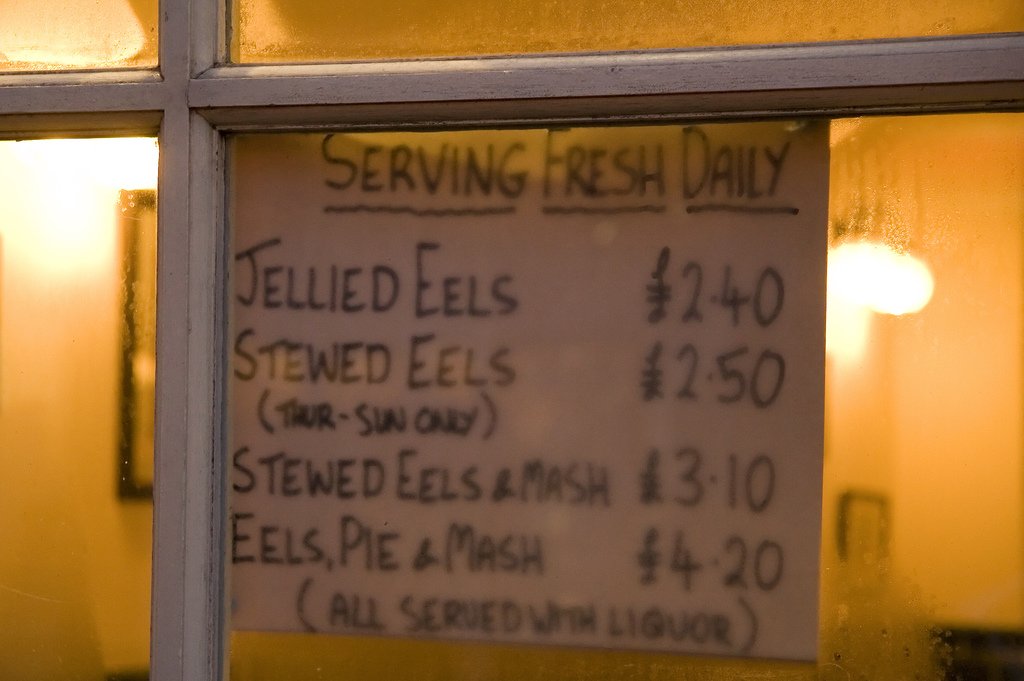 SERVING FRESH DAILY
JELLIED EELS £2.40
STEWED EELS £2.50
(THUR-SUN ONLY)
STEWED EELS & MASH £3.10
EELS, PIE & MASH £4.20
(ALL SERVED WITH LIQUOR)